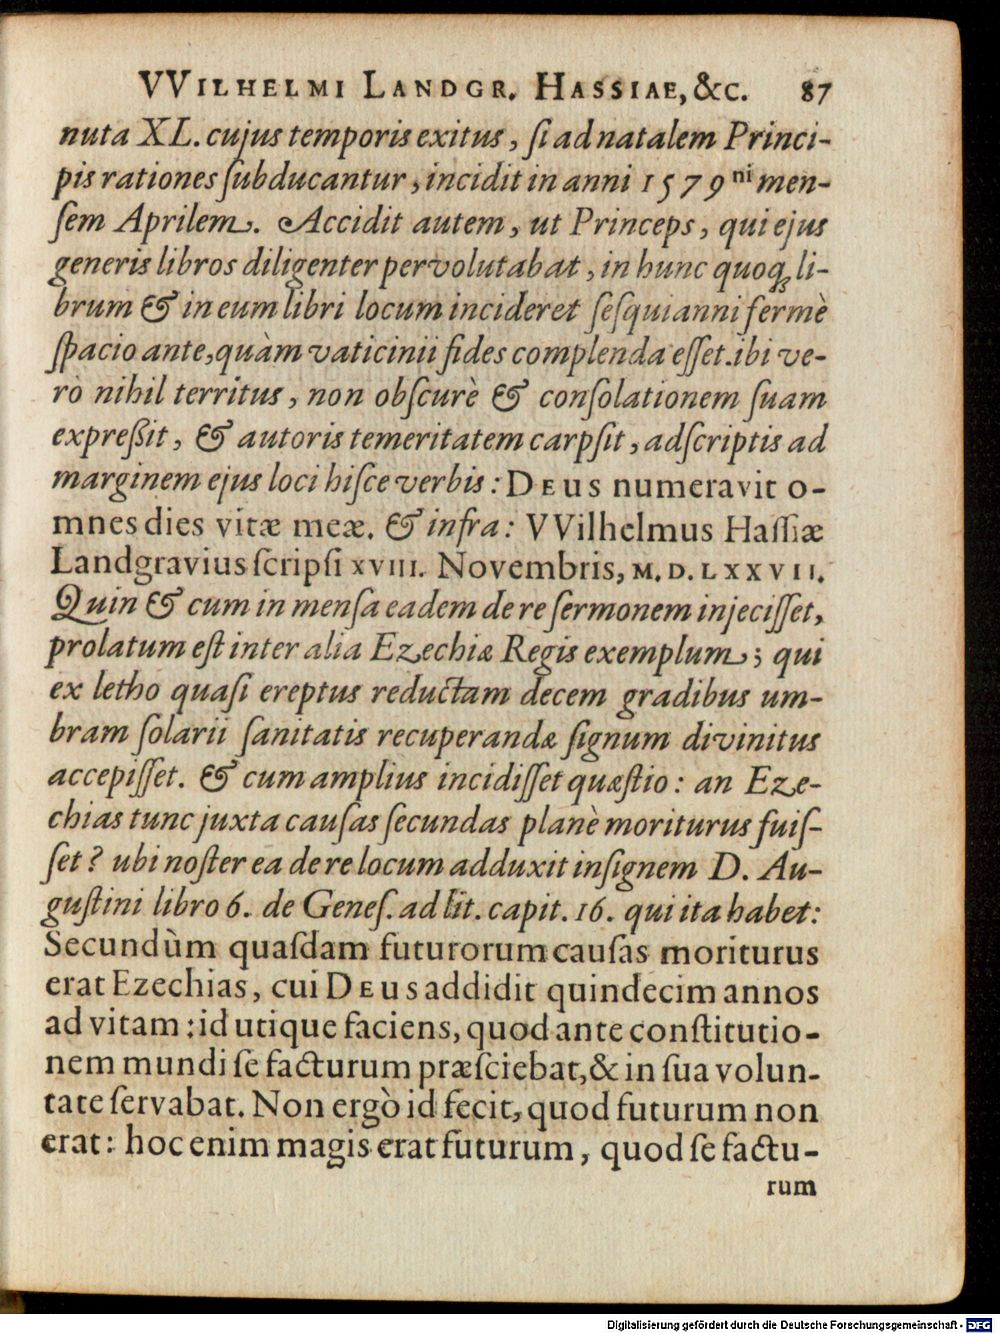 VVILHELMI LANDGR. HASSIAE, &c. 87
nuta XL. cujus temporis exitus, ſi ad natalem Princi-
pis rationes ſubducantur, incidit in anni 1579ⁿⁱ men-
ſem Aprilem. Accidit autem, ut Princeps, qui ejus
generis libros diligenter pervolutabat, in hunc quoq; li-
brum & in eum libri locum incideret ſeſquianni fermè
ſpacio ante, quàm vaticinii fides complenda eſſet. ibi ve-
rò nihil territus, non obſcurè & conſolationem ſuam
expreßit, & autoris temeritatem carpſit, adſcriptis ad
marginem ejus loci hiſce verbis: DEUS numeravit o-
mnes dies vitæ meæ. & infra: VVilhelmus Haſſiæ
Landgravius ſcripſi XVIII. Novembris, M. D. LXXVII.
Quin & cum in menſa eadem de re ſermonem injeciſſet,
prolatum eſt inter alia Ezechiæ Regis exemplum; qui
ex letho quaſi ereptus reductam decem gradibus um-
bram ſolarii ſanitatis recuperandæ ſignum divinitus
accepiſſet. & cum amplius incidiſſet quæſtio: an Eze-
chias tunc juxta cauſas ſecundas planè moriturus fuiſ-
ſet? ubi noſter ea de re locum adduxit inſignem D. Au-
guſtini libro 6. de Geneſ. ad lit. capit. 16. qui ita habet:
Secundùm quaſdam futurorum cauſas moriturus
erat Ezechias, cui DEUS addidit quindecim annos
ad vitam: id utique faciens, quod ante conſtitutio-
nem mundi ſe facturum præſciebat, & in ſua volun-
tate ſervabat. Non ergò id fecit, quod futurum non
erat: hoc enim magis erat futurum, quod ſe factu-
rum
Digitalisierung gefördert durch die Deutsche Forschungsgemeinschaft - DFG